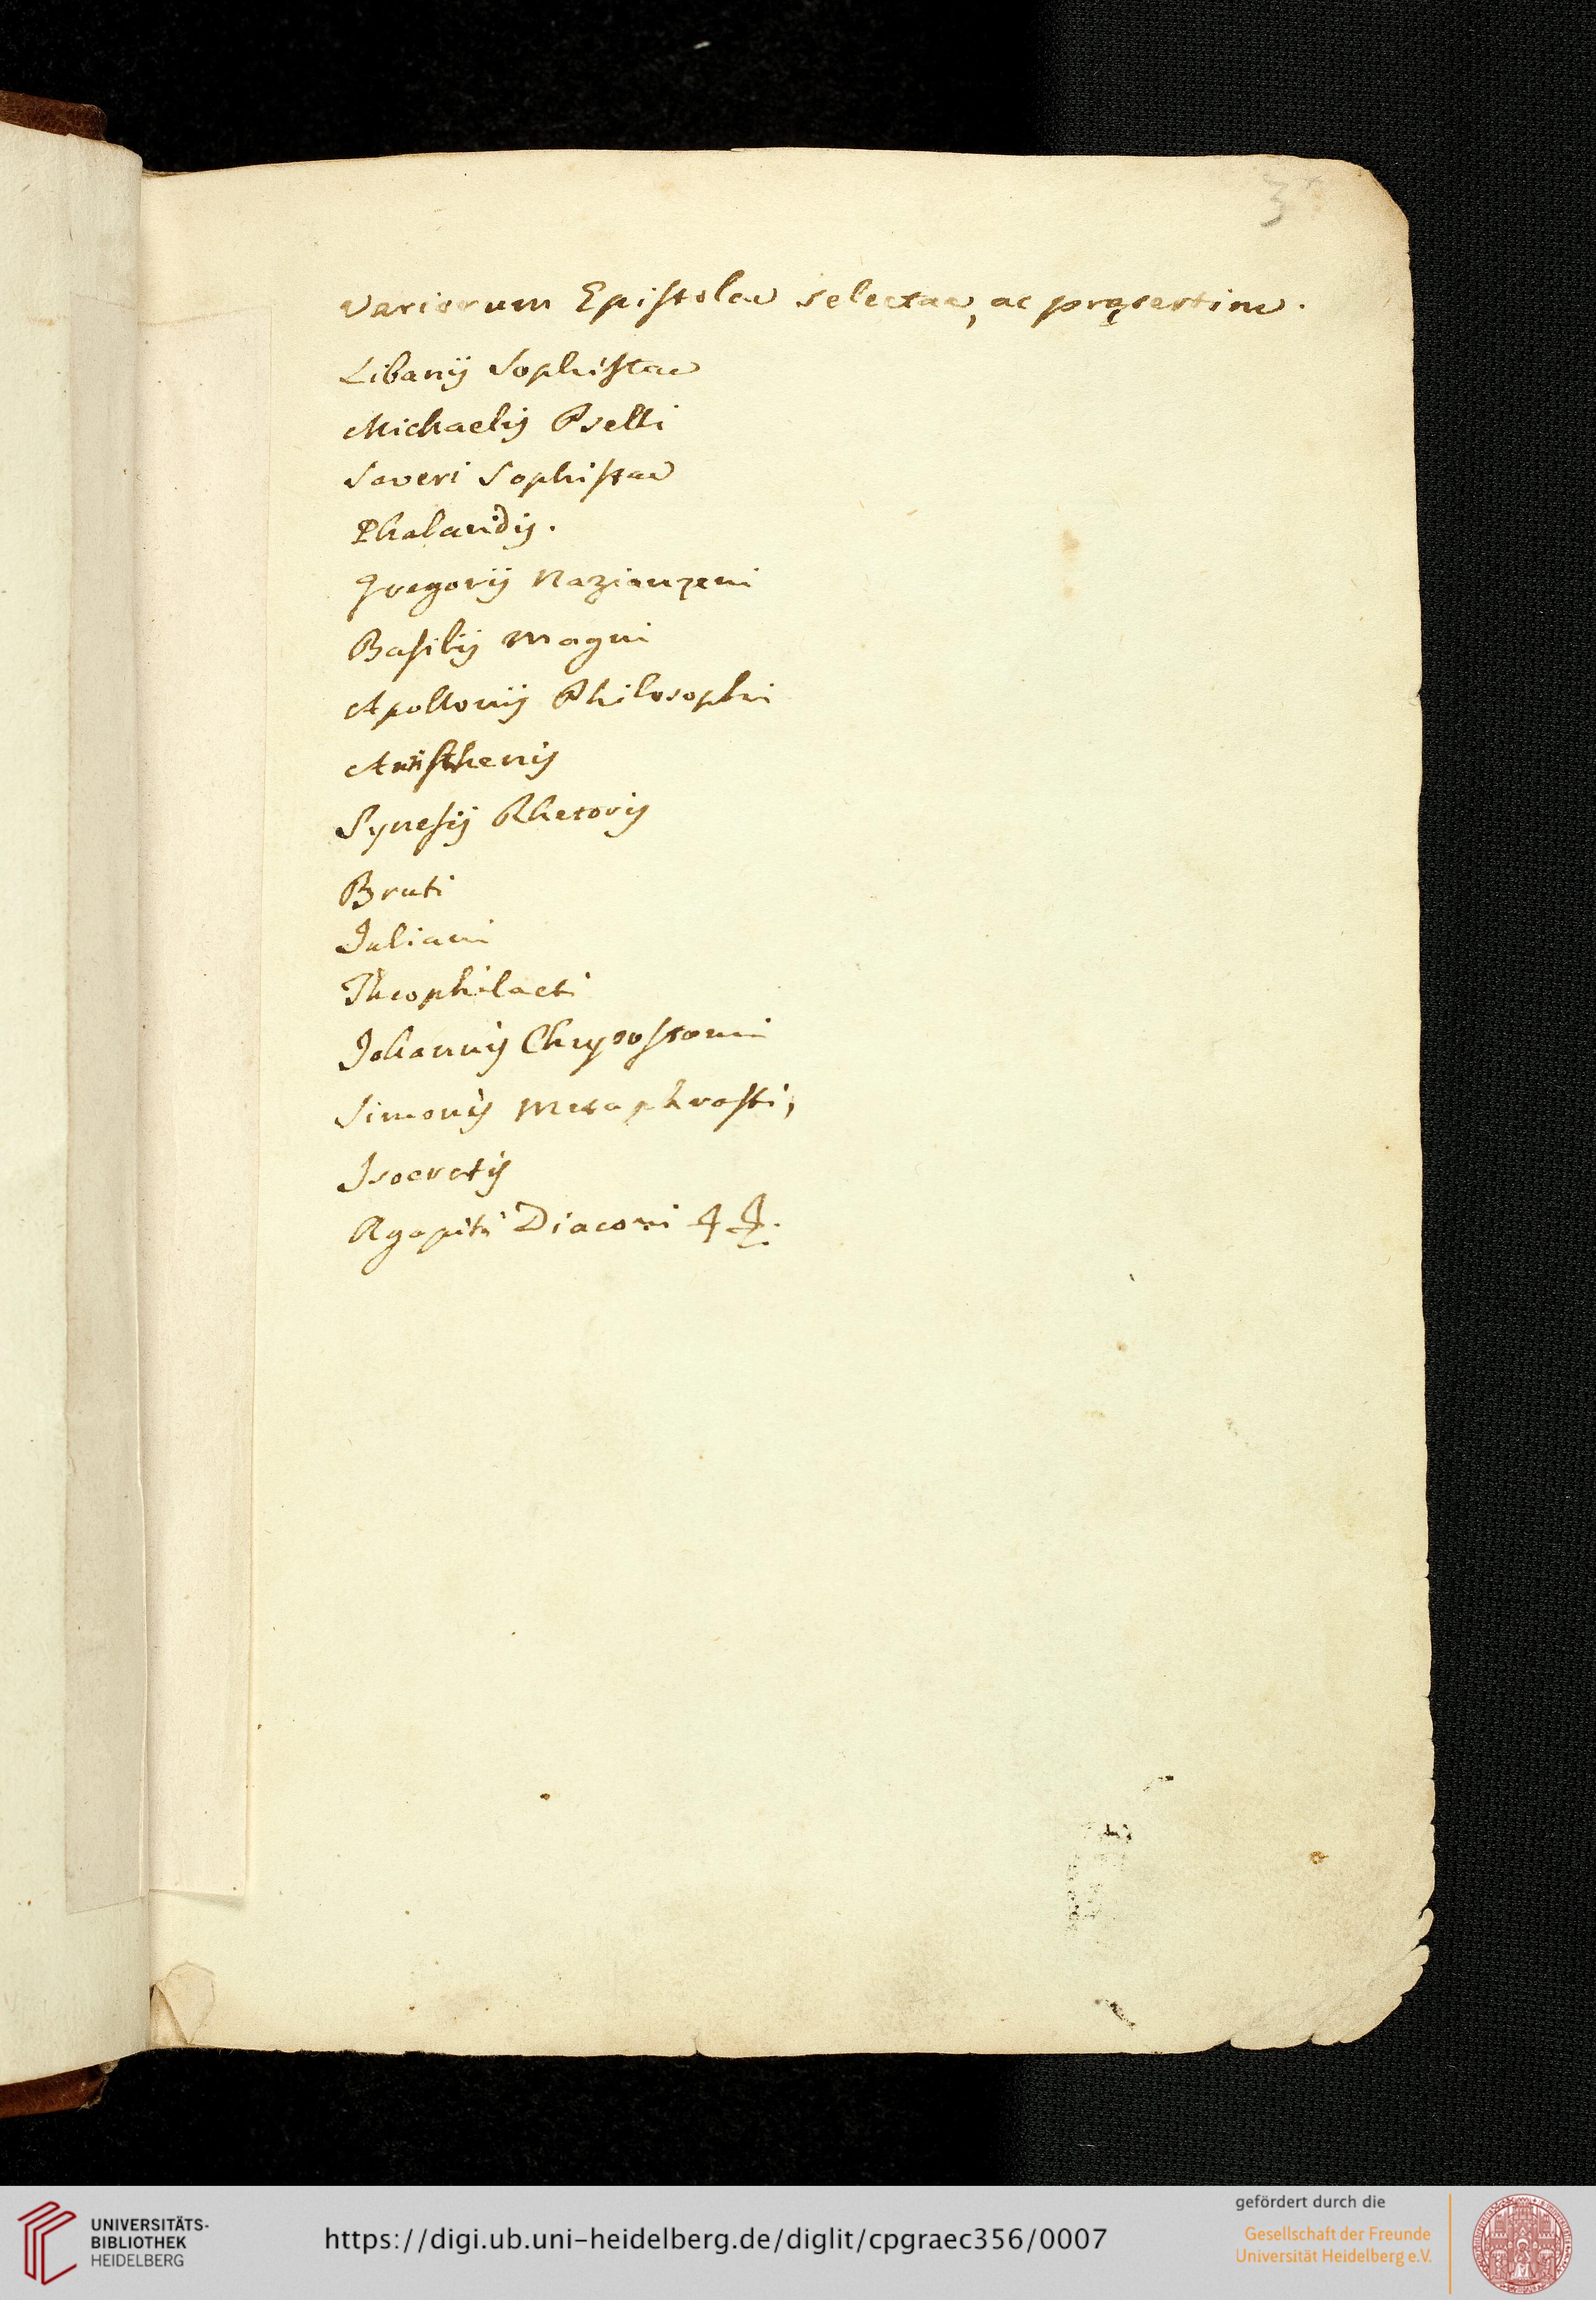 3*
Variorum Epistolae selectae, ac pręsertim.
Libanij Sophistae
Michaelis Pselli
Severi Sophistae
Phalaridis.
Gregorij Nazianzeni
Basilij Magni
Apollonij Philosophi
Synesij Rhetoris
Bruti
Iuliani
Theophilacti
Johannis Chrysostomi
Simonis Metaphrasti,
Isocratis
Agapiti Diaconi
UNIVERSITÄTS-
BIBLIOTHEK
HEIDELBERG
https://digi.ub.uni-heidelberg.de/diglit/cpgraec356/0007
gefördert durch die
Gesellschaft der Freunde
Universität Heidelberg e.V.